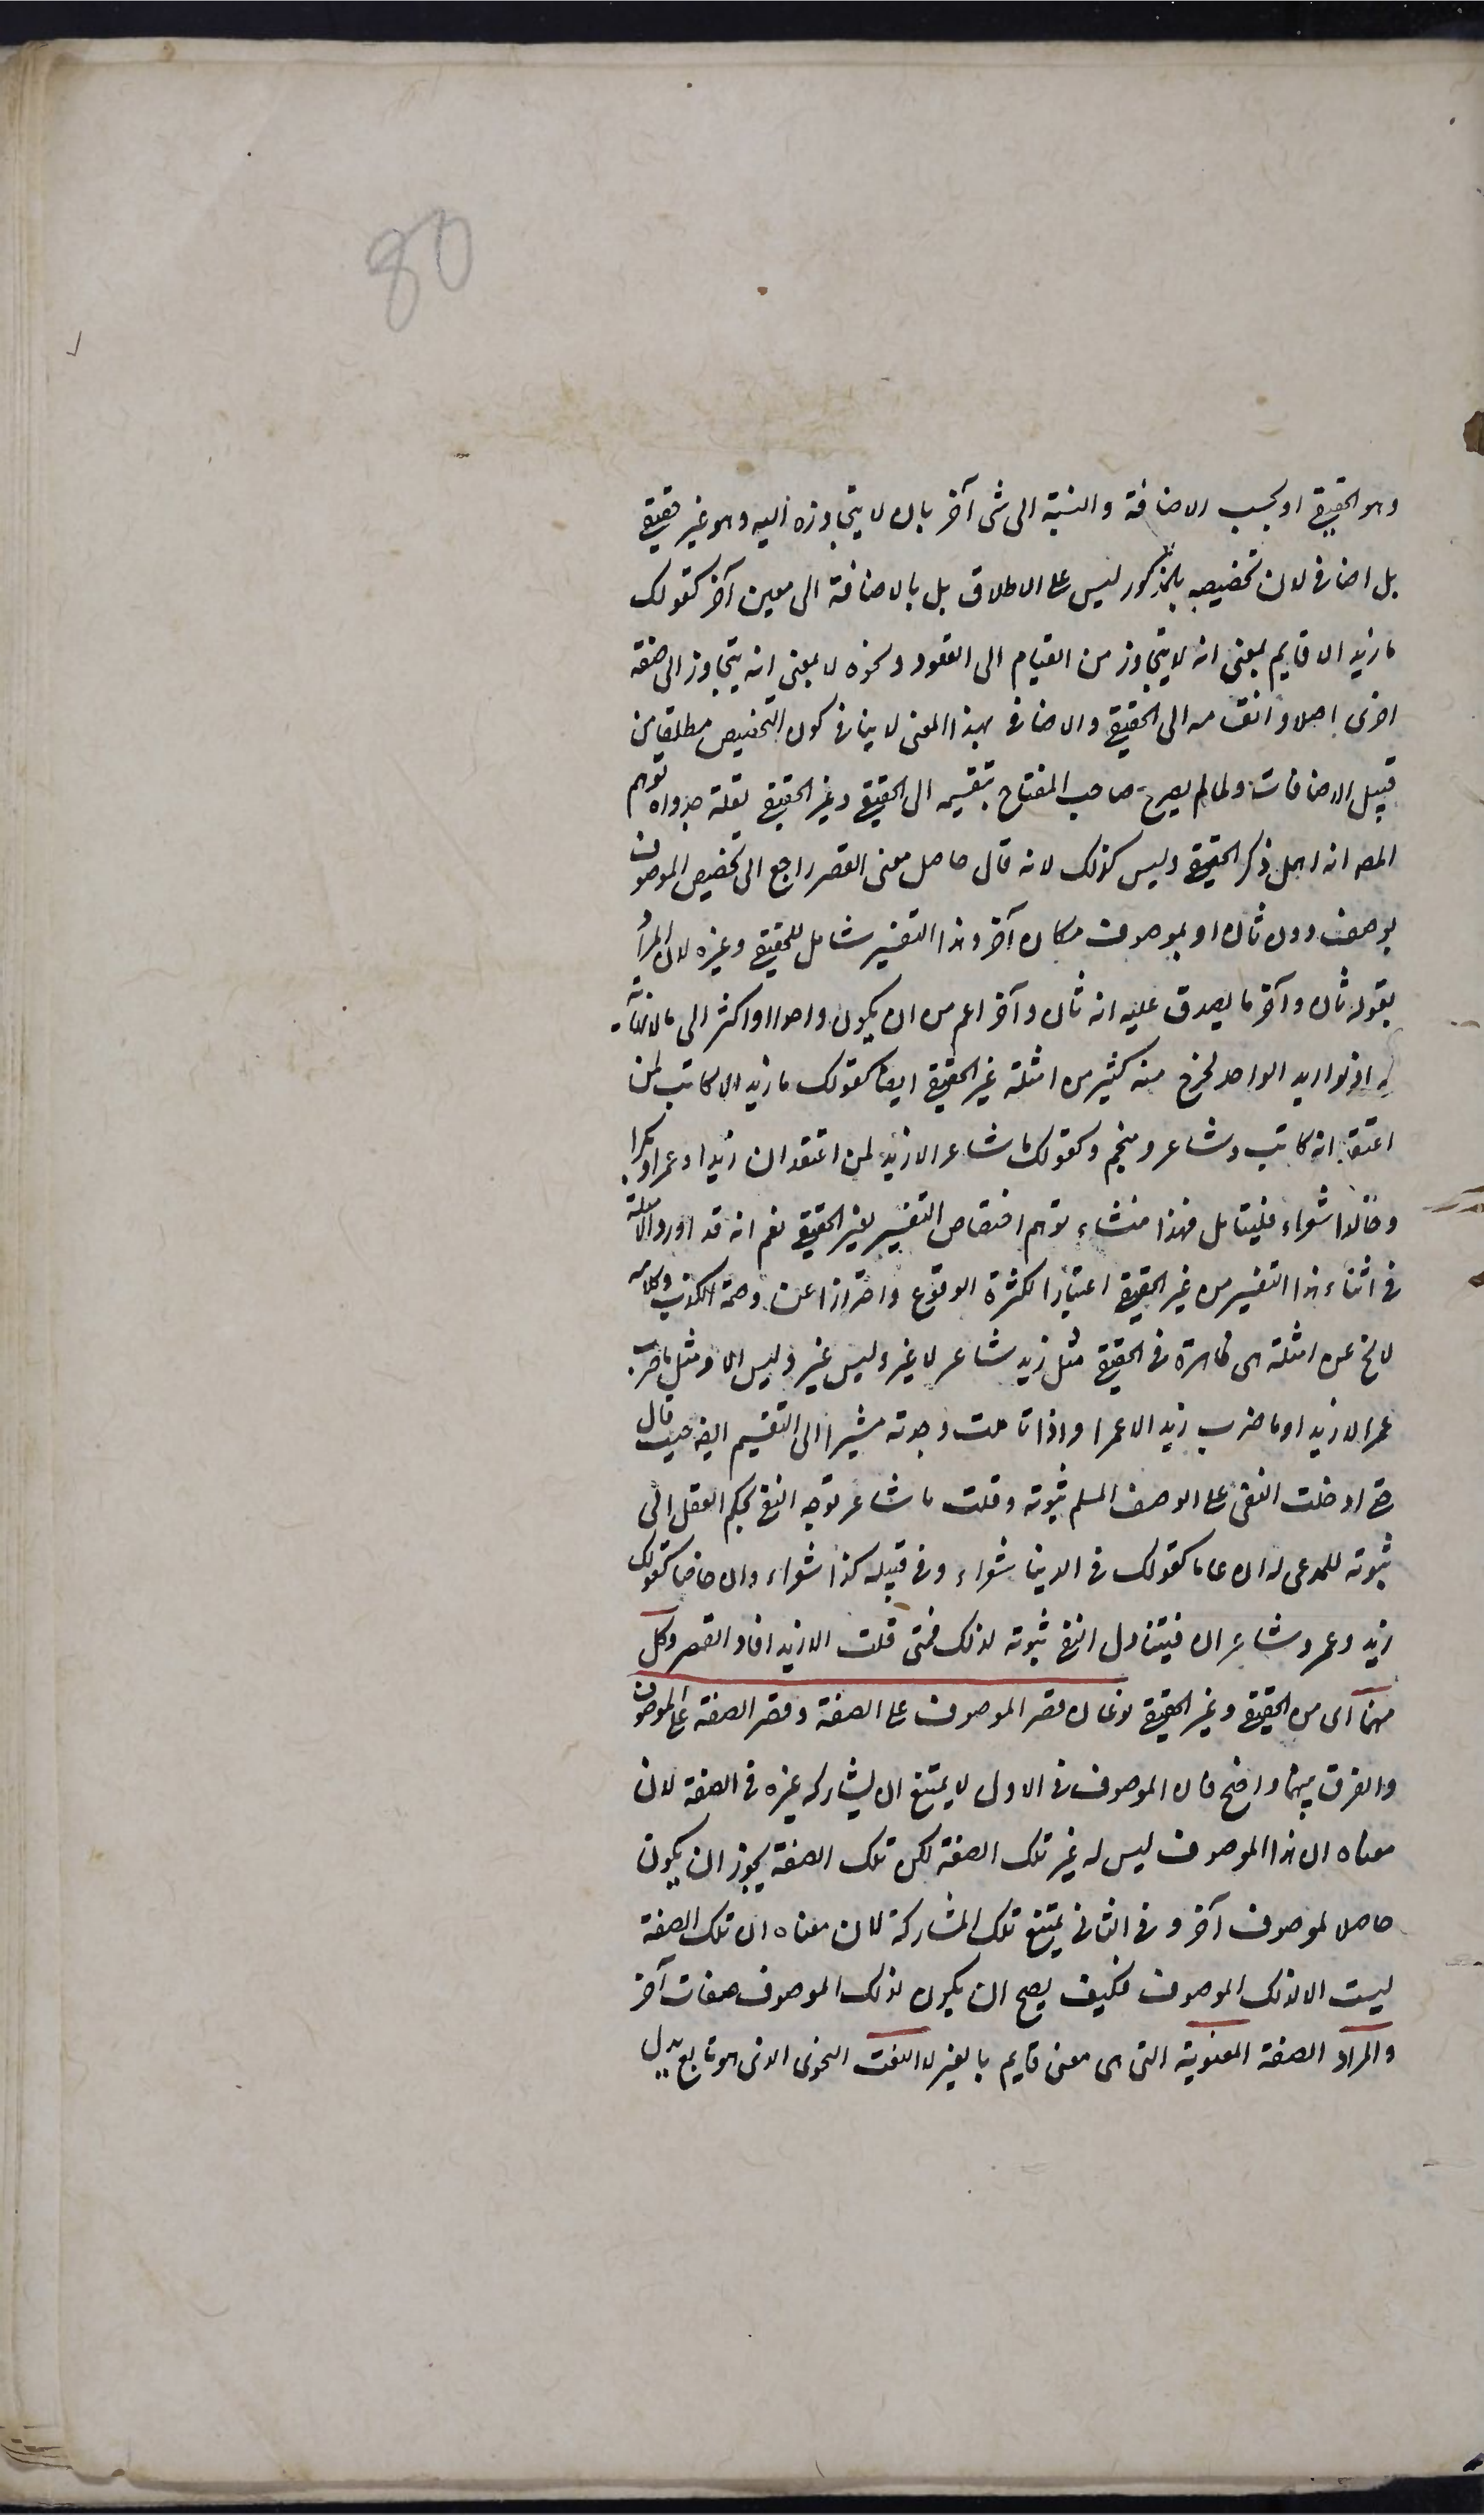 80
وهو الحقيقى او بحسب الاضافة والنسبة الى شى آخر بان لا يتجاوزه اليه وهو غير حقيقى
بل اضافى لان تخصيصه بالمذكور ليس على الاطلاق بل بالاضافة الى معين آخر كقولك
ما زيد الا قايم بمعنى انه لا يتجاوز من القيام الى القعود ونحوه لا بمعنى انه يتجاوز الى صفة
اخرى اصلا وانقسامه الى الحقيقى والاضافى بهذا المعنى لا ينافى كون التخصيص مطلقا من
قبيل الاضافات ولما لم يصرح صاحب المفتاح بتقسيمه الى الحقيقى وغير الحقيقى لقلة جدواه توهم
المصـ انه اهمل ذكر الحقيقى وليس كذلك لانه قال حاصل معنى القصر راجع الى تخصيص الموصوف
بوصف دون ثان او بموصوف مكان آخر وهذا التفسير شامل للحقيقى وغيره لان المراد
بقوله ثان وآخر ما يصدق عليه انه ثان وآخر اعم من ان يكون واحدا او اكثر الى مالانهاية
له اذ لو اريد الواحد لخرج منه كثير من امثلة غير الحقيقى ايضا كقولك ما زيد الا كاتب لمن
اعتقد انه كاتب وشاعر ومنجم وكقولك ما شاعر الا زيد لمن اعتقد ان زيدا وعمرا وبكرا
وخالدا شعراء فليتامل فهذا منشاء توهم اختصاص التفسير بغير الحقيقى نعم انه قد اورد الامثلة
فى اثناء هذا التفسير من غير الحقيقى اعتبارا لكثرة الوقوع واحترازا عن وصمة الكذب وكلامه
لا يخ عن امثلة هى ظاهرة فى الحقيقى مثل زيد شاعر لا غير وليس غير وليس الا ومثل ما ضرب
عمرا الا زيد او ما ضرب زيد الا عمرا واذا تاملت وجدته مشيرا الى التقسيم ايضا حيث قال
متى ادخلت النفى على الوصف المسلم ثبوته وقلت ما شاعر توجه النفى بحكم العقل الى
ثبوته للمدعى له ان عاما كقولك فى الدنيا شعراء وفى قبيلة كذا شعراء وان خاصا كقولك
زيد وعمرو شاعران فيتناول النفى ثبوته لذلك فمتى قلت الا زيد افاد القصر وكل
منهما اى من الحقيقى وغير الحقيقى نوعان قصر الموصوف على الصفة وقصر الصفة على الموصوف
والفرق بينهما واضح فان الموصوف فى الاول لا يمتنع ان يشاركه غيره فى الصفة لان
معناه ان هذا الموصوف ليس له غير تلك الصفة لكن تلك الصفة يجوز ان يكون
حاصلا لموصوف آخر وفى الثانى يمتنع تلك المشاركة لان معناه ان تلك الصفة
ليست الا لذلك الموصوف فكيف يصح ان يكون لذلك الموصوف صفات آخر
والمراد الصفة المعنوية التى هى معنى قايم بالغير لا النعت النحوى الذى هو تابع يدل